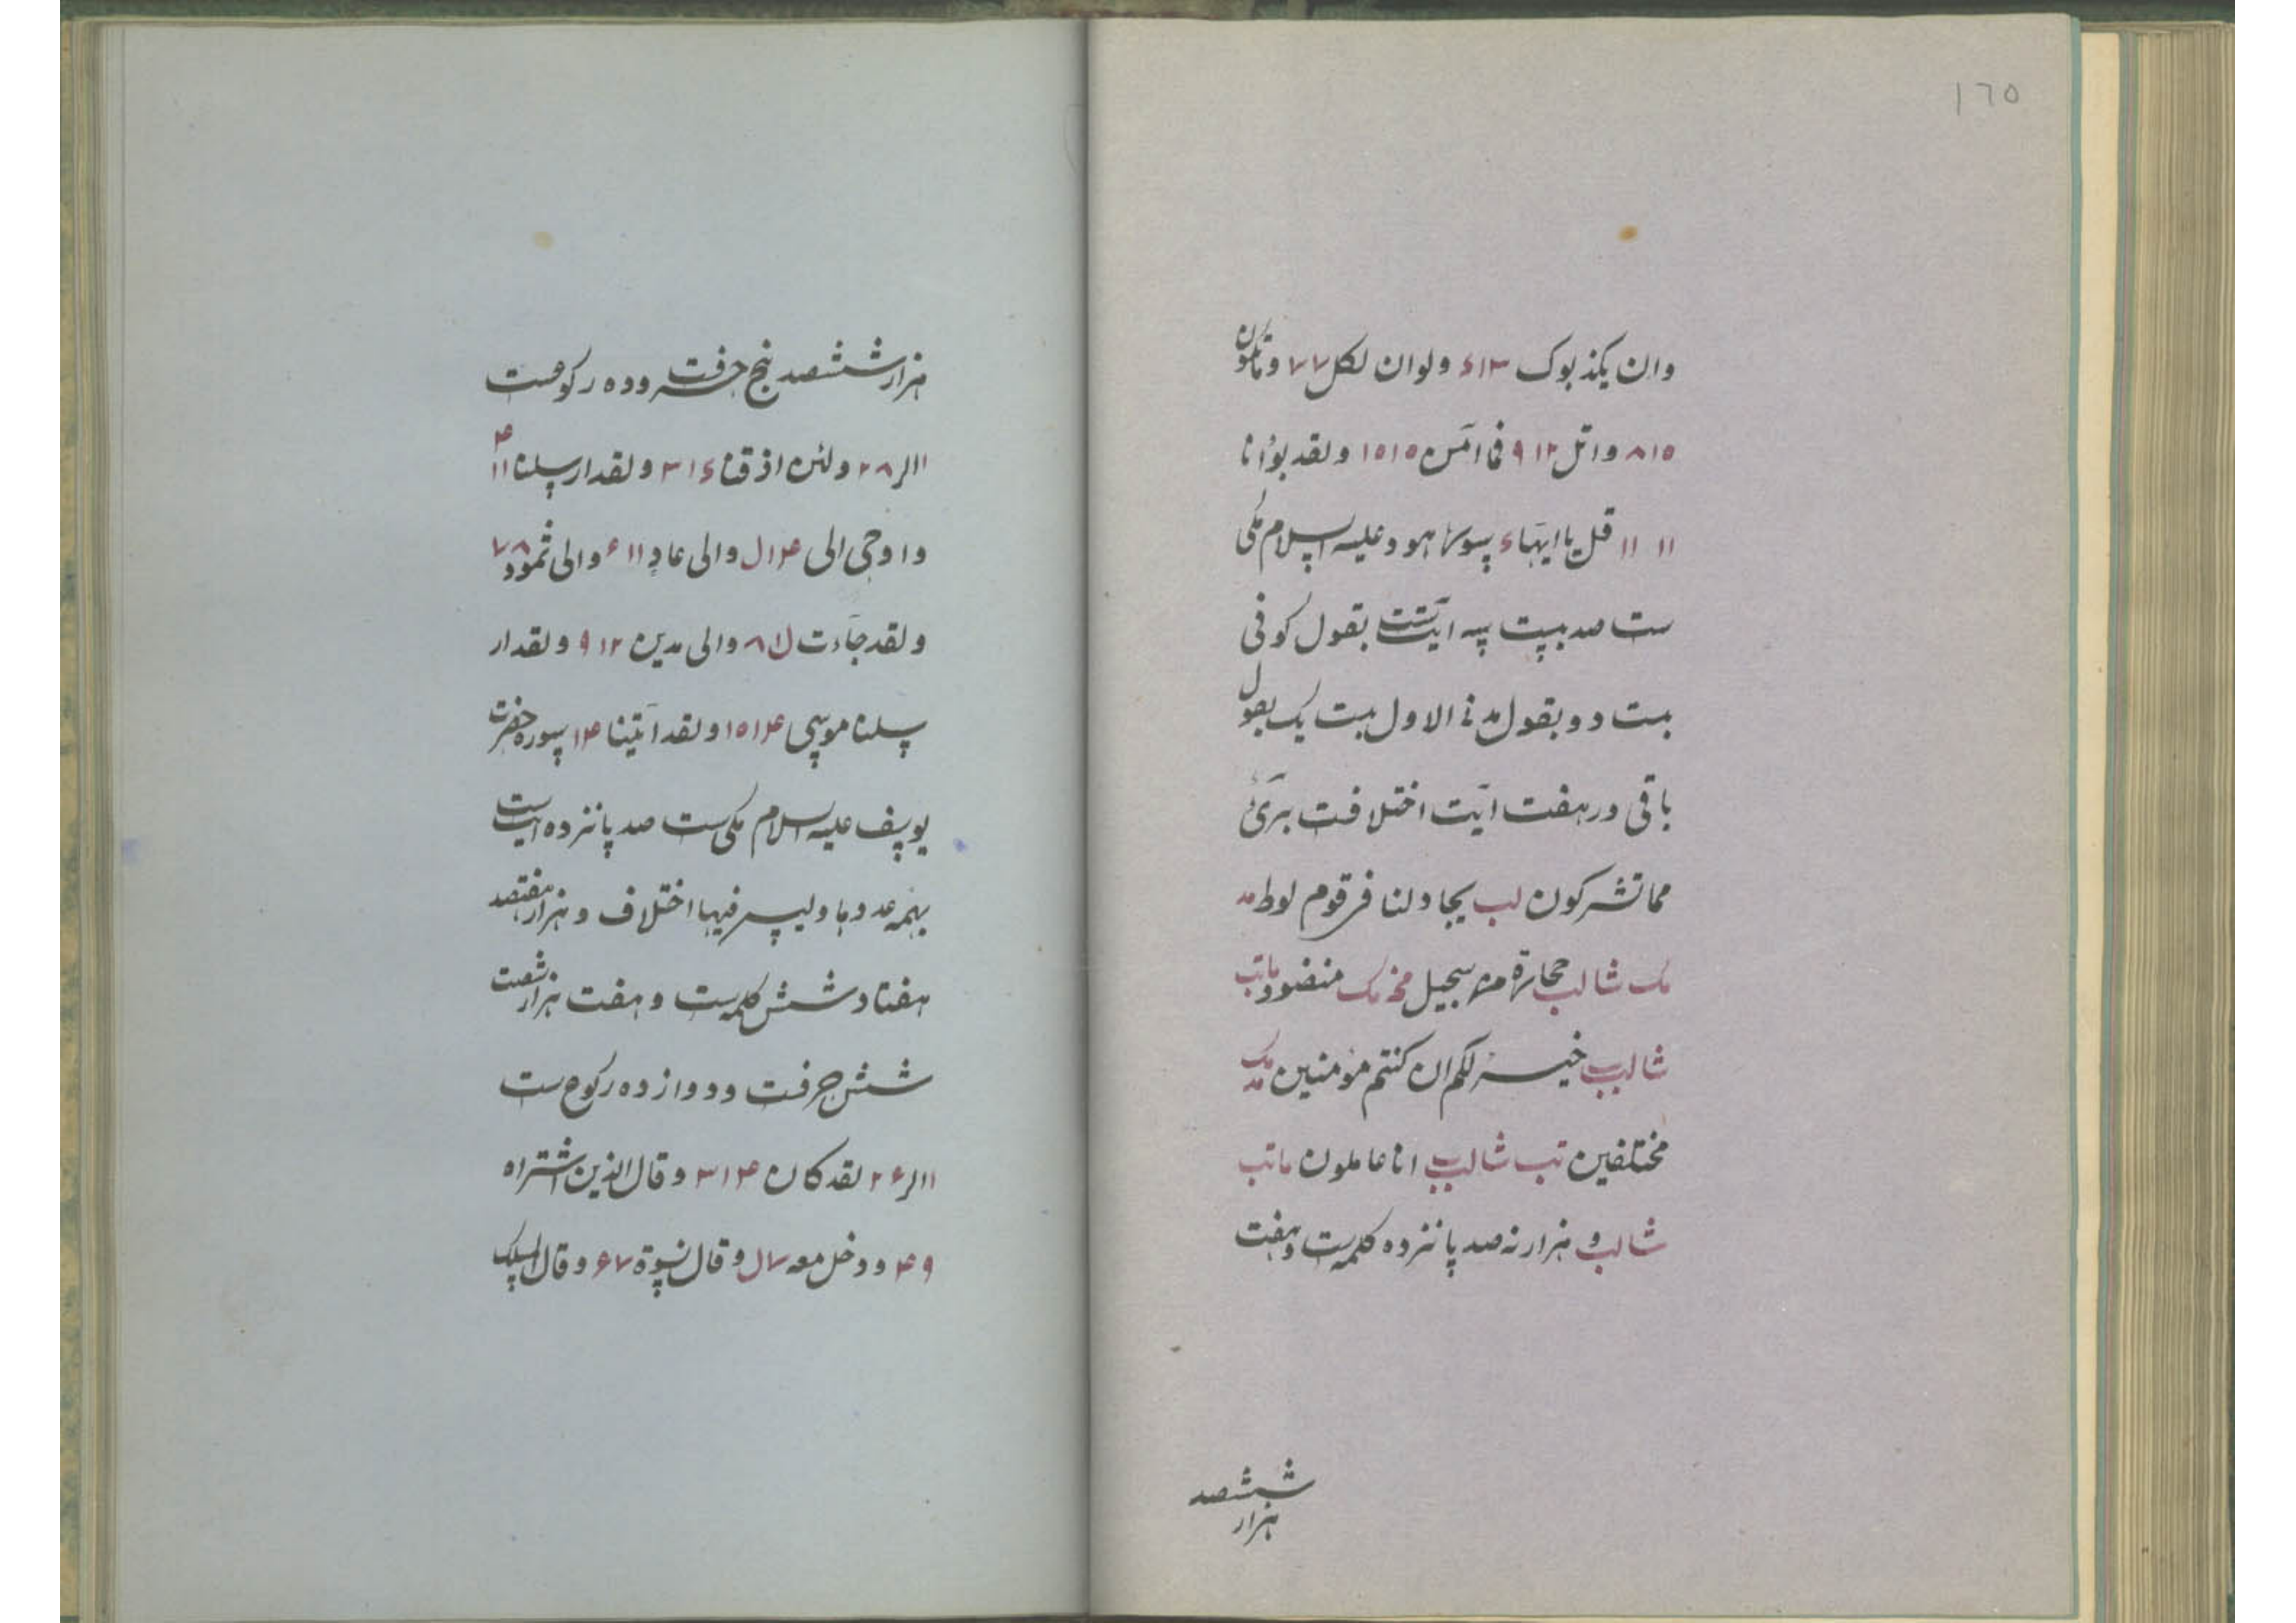 ١٦٥
وان یکذبوک ۱۳ء ولوان لکل ۷۷ وماتکون
۸۱۵ واتل ۹۱۲ فما آمن ۱۵۱۵ ولقد بوأنا
۱۱ ۱۱ قل یا ایهاء سوره هود علیه السلام مکی
ست صد بیست سه آیتست بقول کوفی
بیست دو بقول مدنی الاول بیست یک بقول
باقی در هفت آیت اختلافت بریٔ
مما تشرکون لب یجادلنا فی قوم لوط مد
مک شا لب حجارة من سجیل مخ مک منضود ماتب
شا لب خیر لکم ان کنتم مؤمنین مک مد
مختلفین تب شا لب انا عاملون ماتب
شا لب و هزار نه صد پانزده کلمه ست و هفت
ششصد
هزار
هزار ششصد پنج حرفت و ده رکوعست
۱۱لر ۲۸ ولئن اذقنا ۳۱ء ولقد ارسلنا ۱۱ ۴
واوحی الی ۱۴ل والی عاد ۱۱ء والی ثمود ۷۸
ولقد جاءت ل۸۱ والی مدین ۹۱۲ ولقد ار
سلنا موسی ۱۵۱۴ ولقد آتینا ۱۴ سوره حضرت
یوسف علیه السلام مکی ست صد پانزده آیت ست
بهمه عددها ولیس فیها اختلاف و هزار هفتصد
هفتاد شش کلمه ست و هفت هزار شصت
شش حرفت و دوازده رکوع ست
۱۱لر ۲۶ لقد کان ۳۱۴ وقال الذین اشتراه
۴۹ ودخل معه ۷ل وقال نسوة ۶۷ وقال الملک